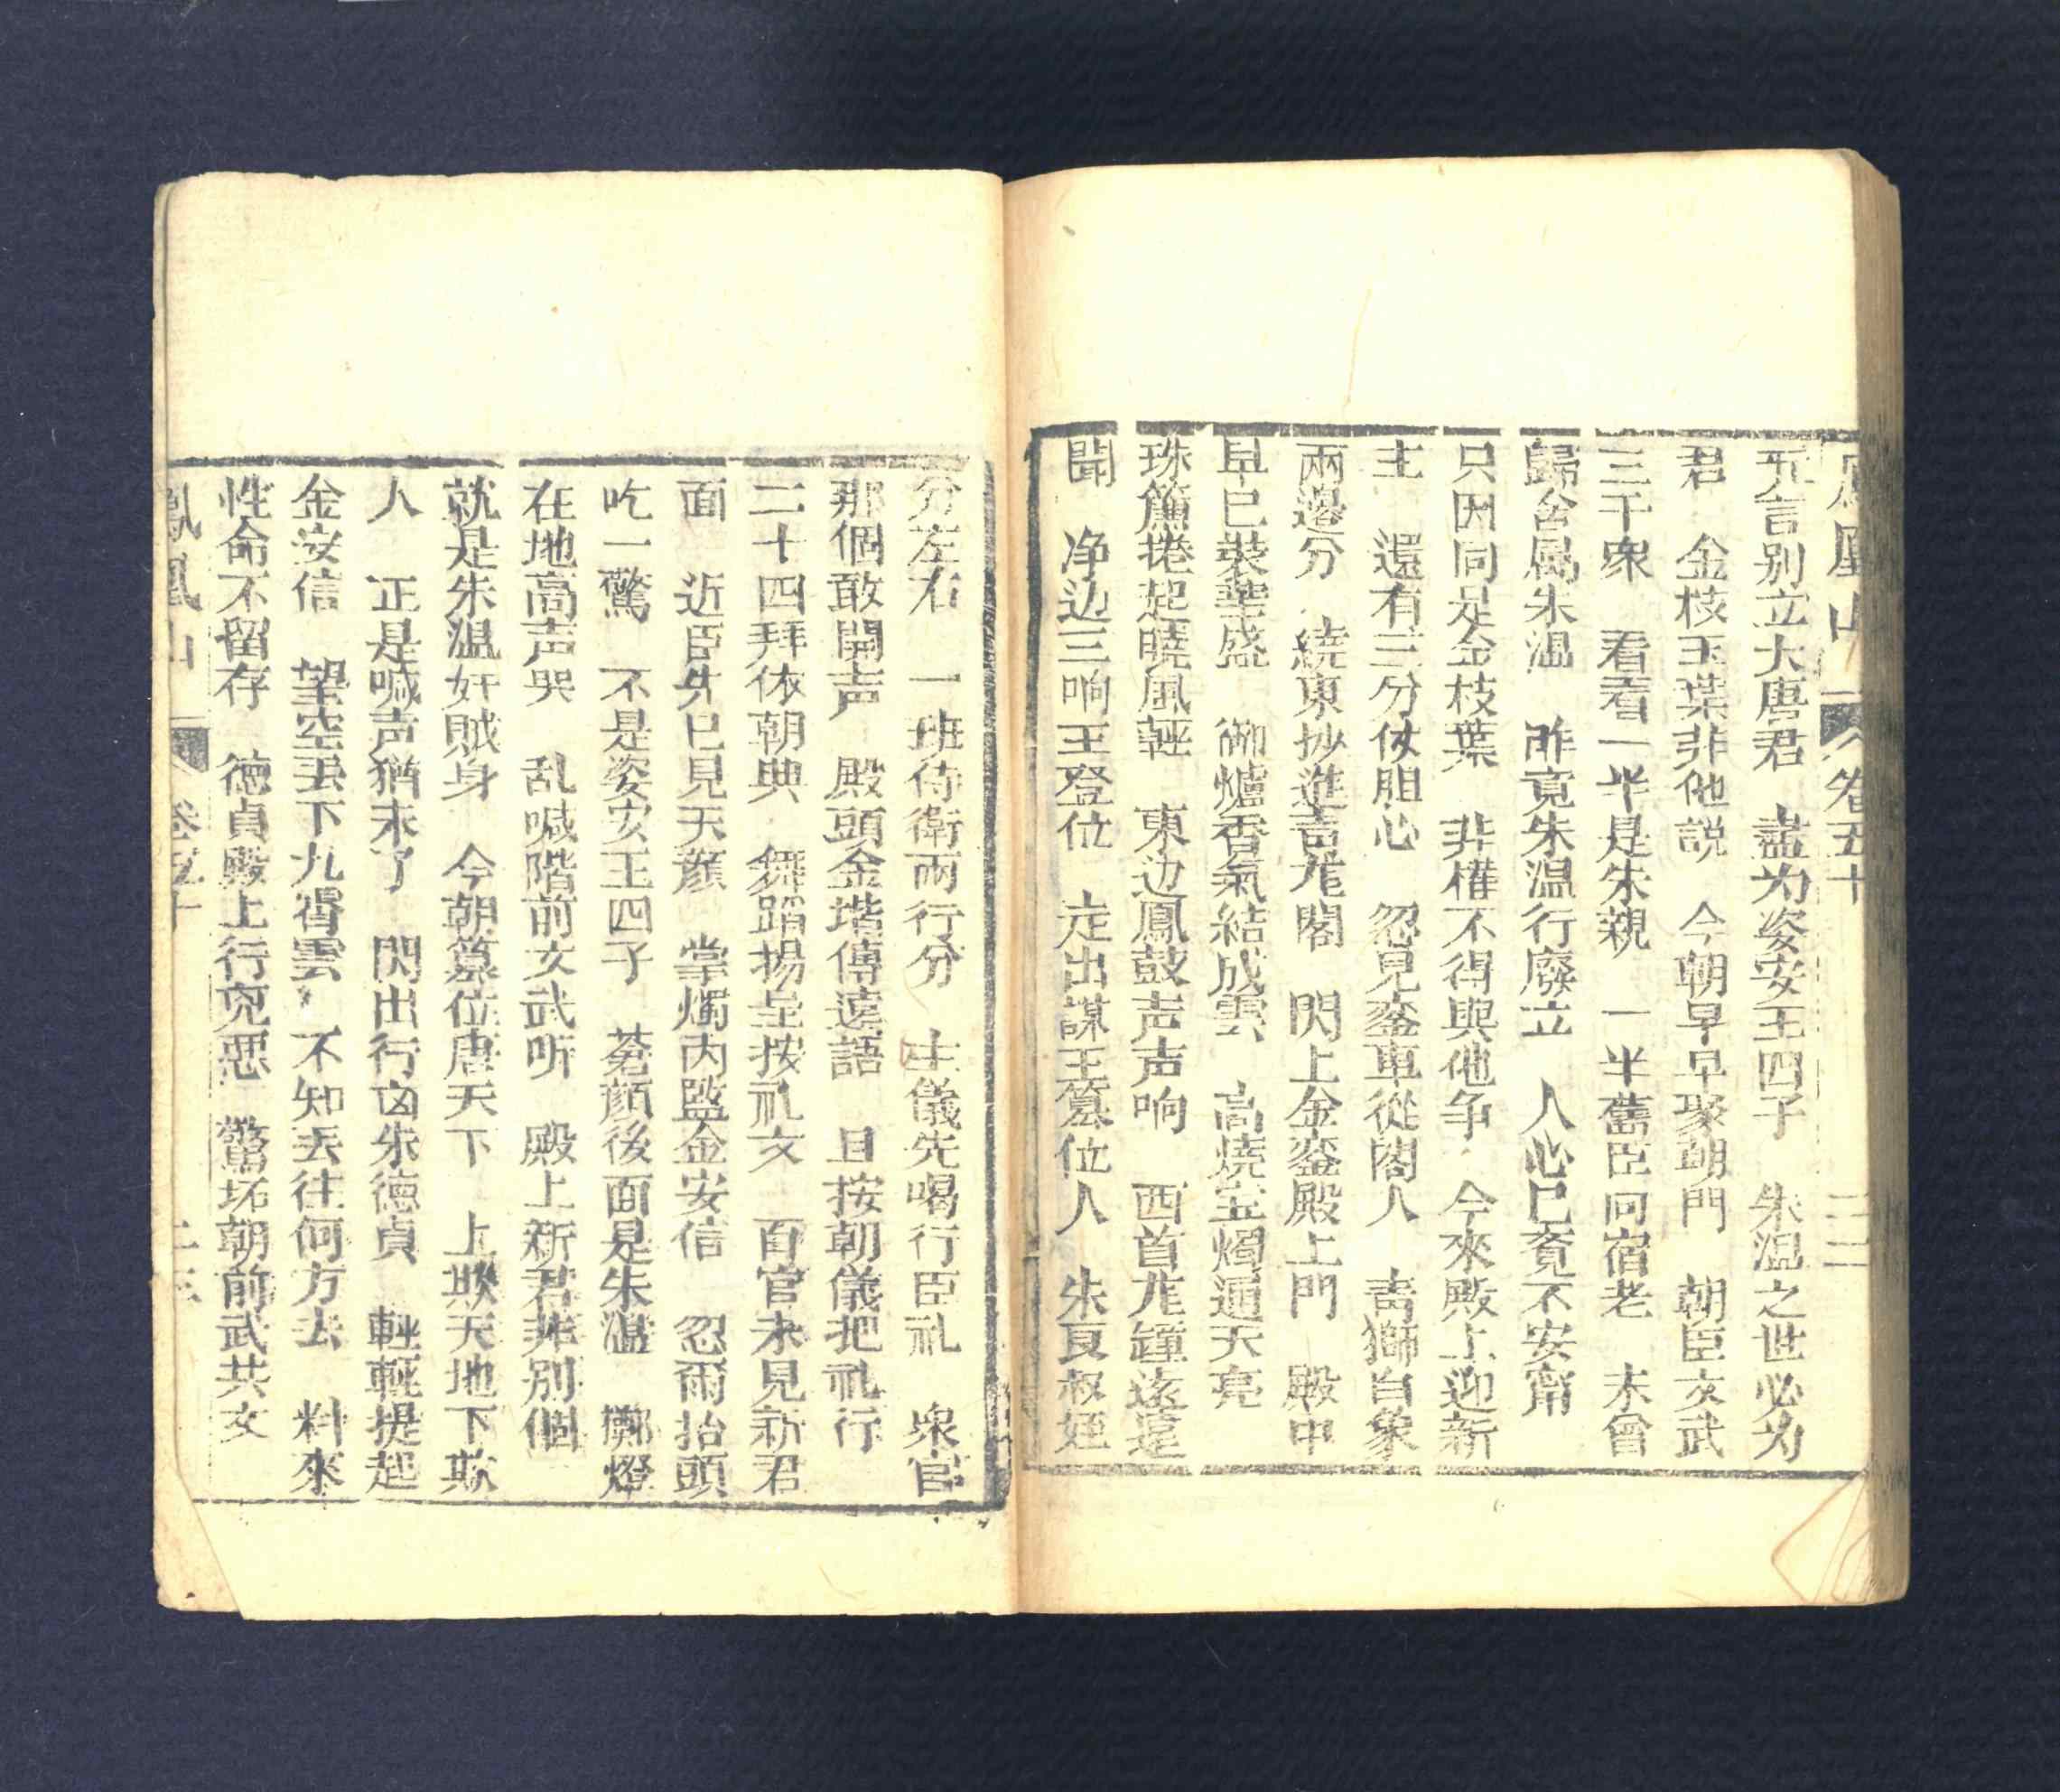 鳳凰山 卷五十 二二
兄言别立大唐君 盡为姿安王四子 朱温之世必为
君 金枝玉葉非他説 今朝早早聚朝門 朝臣文武
三千衆 看看一半是朱親 一半舊臣同宿老 未曾
歸舍属朱温 昨竟朱温行廢立 人心已覔不安甯
只因同是金枝葉 非權不得與他争 今來殿上迎新
主 還有三分伏胆心 忽見鑾車從閣人 青獅白象
兩邊分 繞東抄進言龙閣 閃上金鑾殿上門 殿中
早已裝華盛 御爐香氣結成雲 高燒宝燭逼天亮
珠簾捲起曉風輕 東边鳳鼓声声响 西首龙鐘遠遠
聞 净边三响王登位 走出謀王篡位人 朱良叔姪
分左右 一班侍衛兩行分 主儀先喝行臣礼 衆官
那個敢開声 殿頭金堦傳遠語 且按朝儀把礼行
二十四拜依朝典 舞蹈揚尘按礼文 百官未見新君
面 近臣先已見天顔 掌燭内監金安信 忽爾抬頭
吃一驚 不是姿安王四子 蒼顔後面是朱温 擲燈
在地高声哭 乱喊階前文武听 殿上新君非别個
就是朱温奸賊身 今朝篡位唐天下 上欺天地下欺
人 正是喊声猶未了 閃出行凶朱德貞 輕輕提起
金安信 望空丢下九霄雲 不知丢往何方去 料來
性命不留存 德貞殿上行兇惡 驚坏朝前武共文
鳳凰山 卷五十 二三